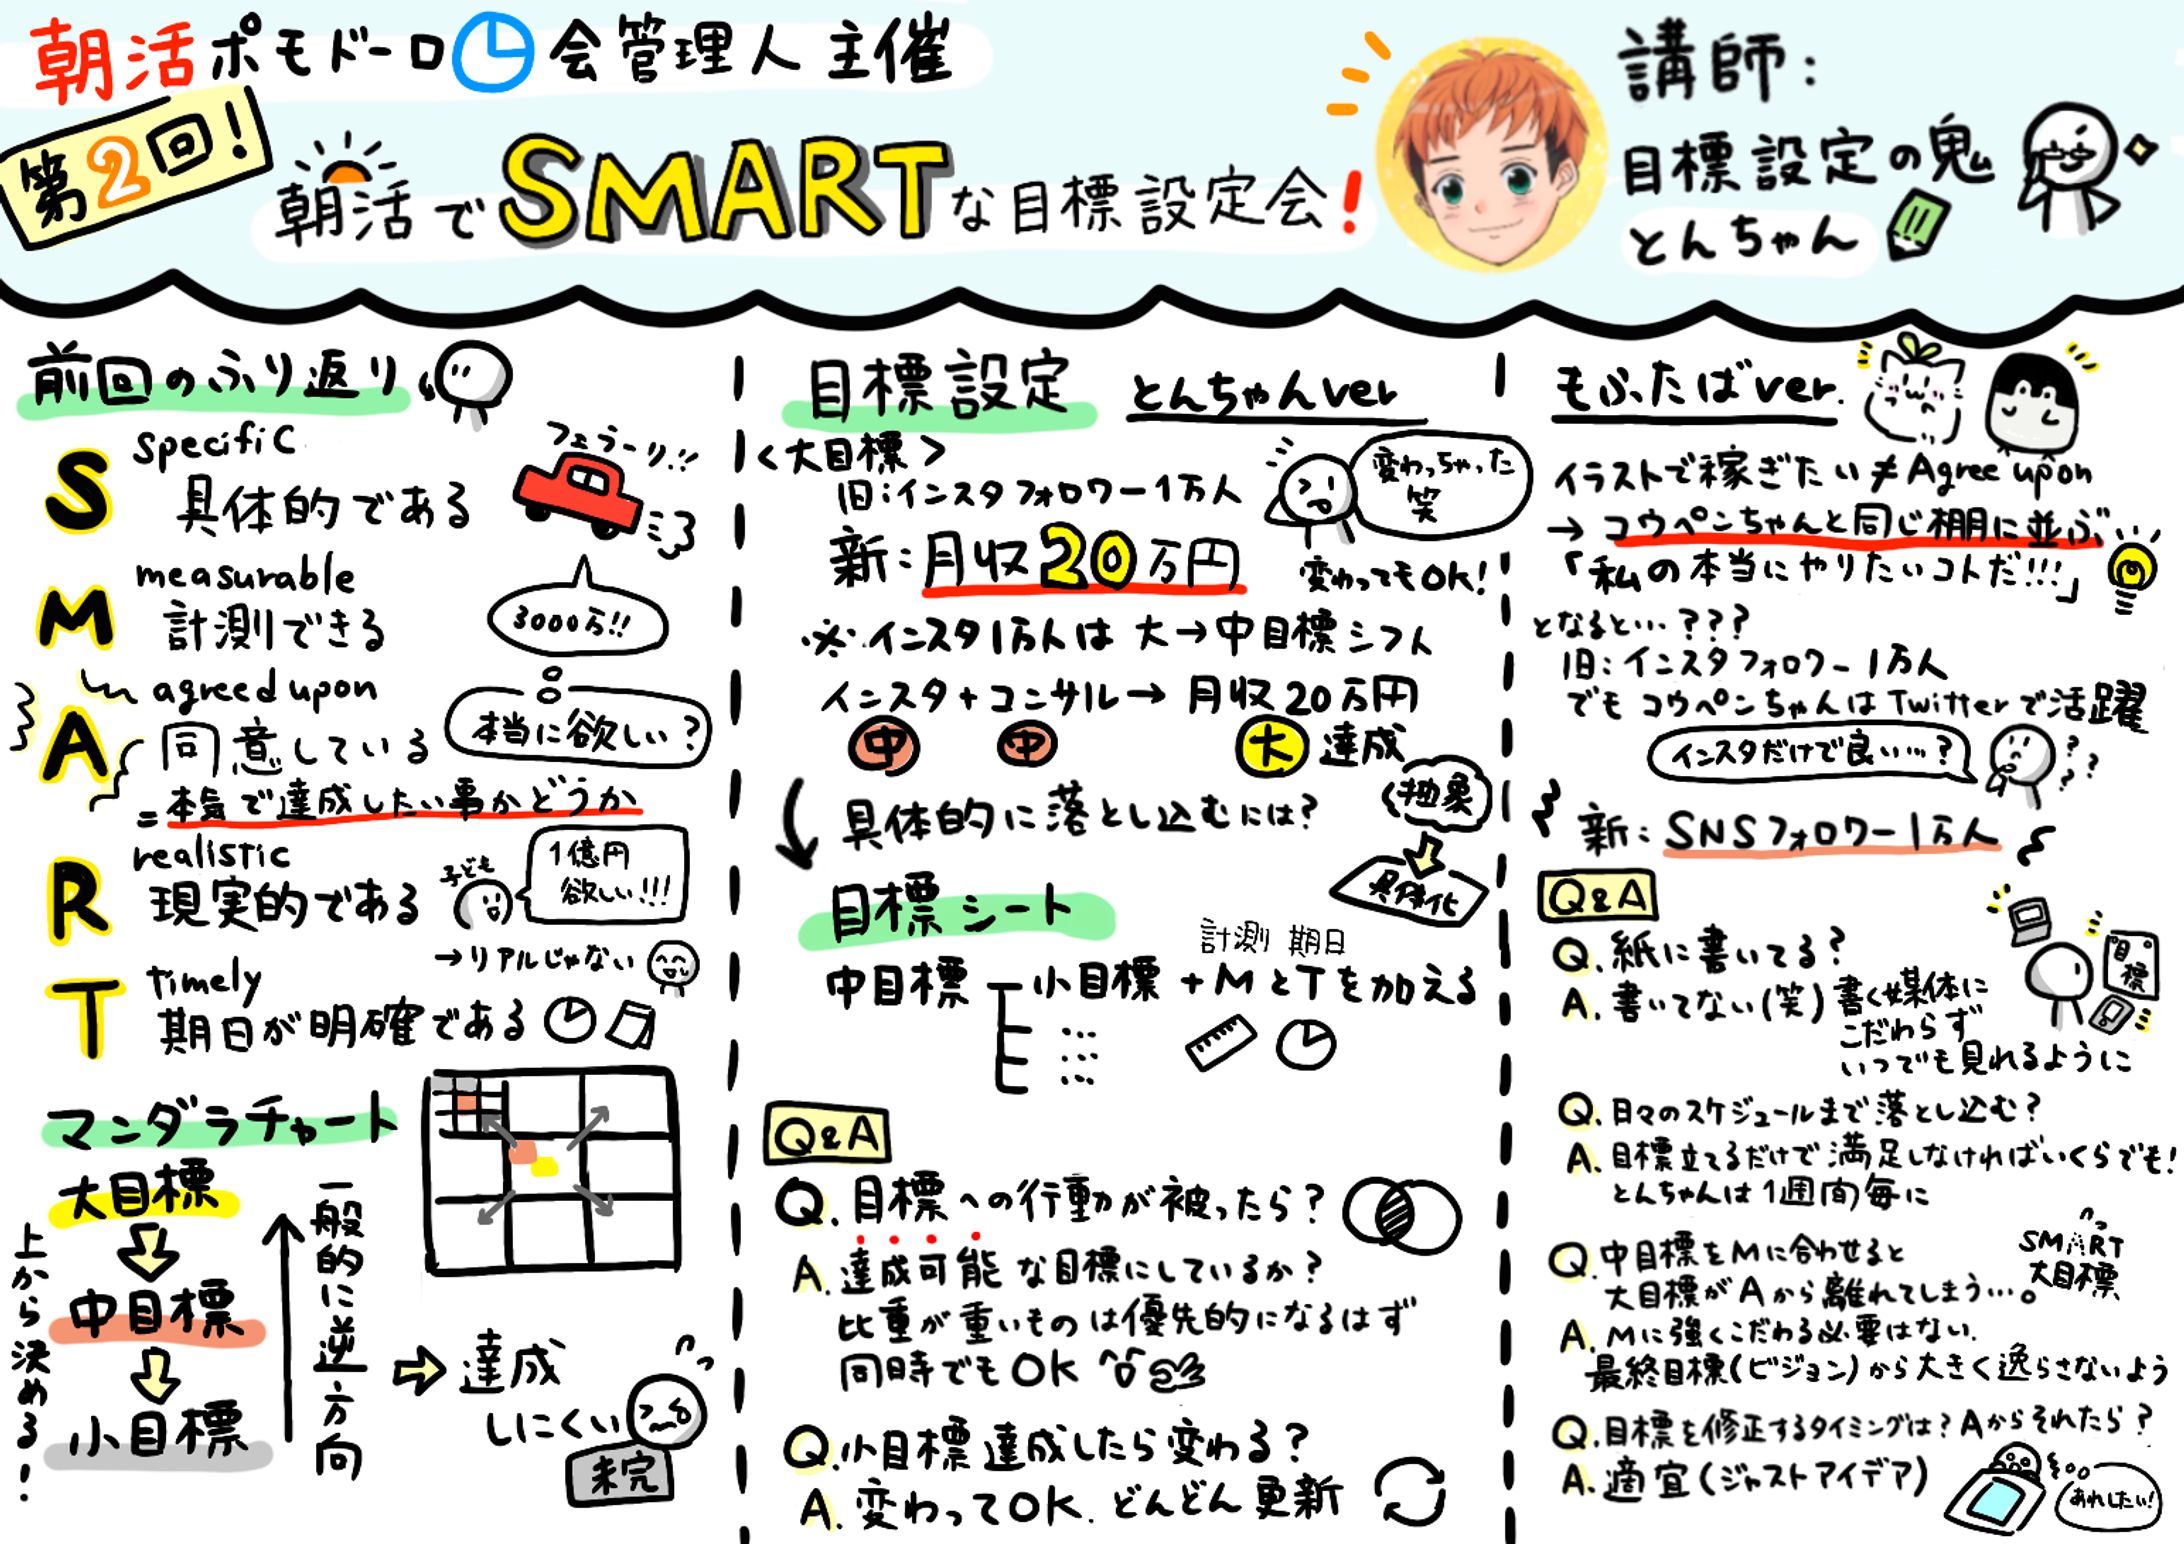 朝活ポモドーロ会管理人主催
第2回!
朝活でSMARTな目標設定会!
講師:
目標設定の鬼
とんちゃん
前回のふり返り
S specific
具体的である
フェラーリ!!
M measurable
計測できる
3000万!!
A agreed upon
同意している
本当に欲しい?
=本気で達成したい事かどうか
R realistic
現実的である
子ども
1億円
欲しい!!!
→リアルじゃない
T timely
期日が明確である
マンダラチャート
大目標
中目標
小目標
上から決める!
一般的に逆方向
達成
しにくい
未完
目標設定 とんちゃんver
<大目標>
旧:インスタフォロワー1万人
新:月収20万円
変わっちゃった
笑
変わってもOK!
※インスタ1万人は 大→中目標シフト
インスタ+コンサル→月収20万円
中 中 大 達成
具体的に落とし込むには?
抽象
具体化
目標シート
計測 期日
中目標 小目標 +MとTを加える
...
...
...
Q&A
Q.目標への行動が被ったら?
A.達成可能な目標にしているか?
比重が重いものは優先的になるはず
同時でもOK
Q.小目標達成したら変わる?
A.変わってOK.どんどん更新
もふたばver.
イラストで稼ぎたい≠Agree upon
→コウペンちゃんと同じ棚に並ぶ
「私の本当にやりたいコトだ!!!」
となると…???
旧:インスタフォロワー1万人
でもコウペンちゃんはTwitterで活躍
インスタだけで良い…?
???
新:SNSフォロワー1万人
Q&A
Q.紙に書いてる?
A.書いてない(笑)書く媒体に
こだわらず
いつでも見れるように
目標
Q.日々のスケジュールまで落とし込む?
A.目標立てるだけで満足しなければいくらでも!
とんちゃんは1週間毎に
Q.中目標をMに合わせると
大目標がAから離れてしまう…。
SMART
大目標
A.Mに強くこだわる必要はない.
最終目標(ビジョン)から大きく逸らさないよう
Q.目標を修正するタイミングは?Aからそれたら?
A.適宜(ジャストアイデア)
あれしたい!